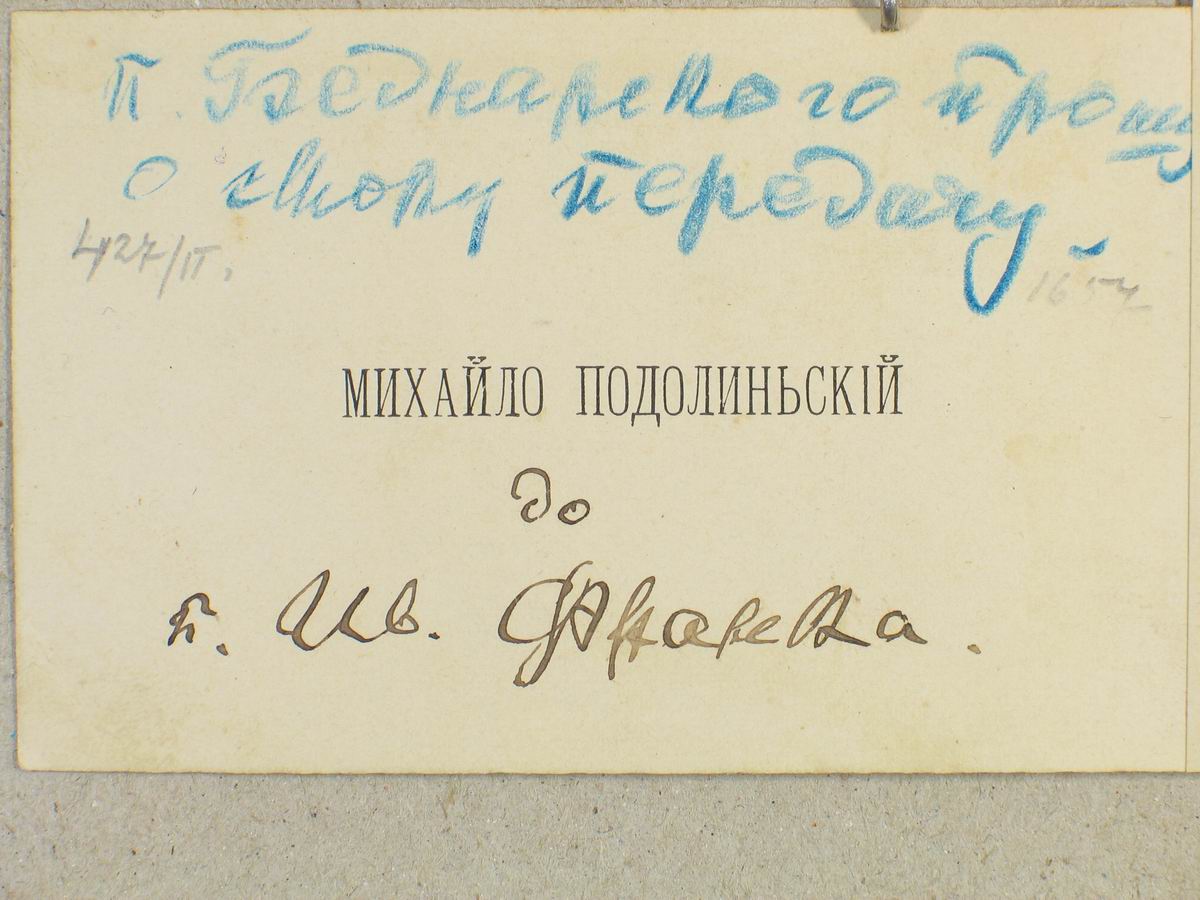 п. Беднарского прошу
о скору передачу.
427/II.
165
МИХАЙЛО ПОДОЛИНЬСКІЙ
до
п. Ив. Франка.